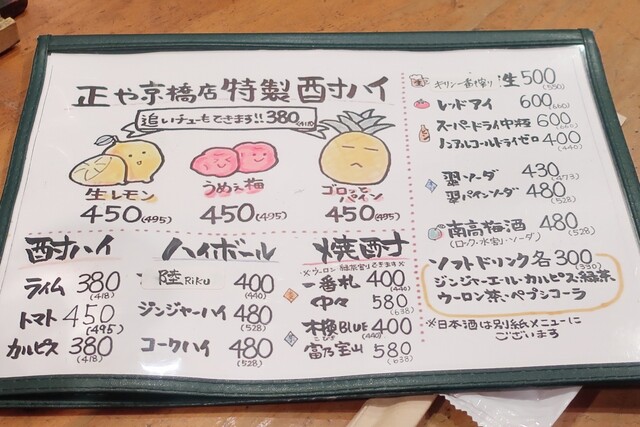 正や京橋店 特製酎ハイ
追いチューもできます!! 380(418)
生レモン
450(495)
うめぇ梅
450(495)
ゴロッとパイン
450(495)
酎ハイ
ライム 380(418)
トマト 450(495)
カルピス 380(418)
ハイボール
陸 RiKU 400(440)
ジンジャーハイ 480(528)
コークハイ 480(528)
焼酎
※ウーロン 緑茶割りできます※
一番札 400(440)
中々 580(638)
木挽BLUE 400(440)
こびき
富乃宝山 580(638)
キリン一番搾り 生 500(550)
レッドアイ 600(660)
スーパードライ中瓶 600(660)
ノンアルコールドライゼロ 400(440)
翠ソーダ 430(473)
翠パインソーダ 480(528)
南高梅酒 480(528)
(ロック・水割り・ソーダ)
ソフトドリンク各300(330)
ジンジャーエール・カルピス・緑茶
ウーロン茶・ペプシコーラ
※日本酒は別紙メニューに
ございます